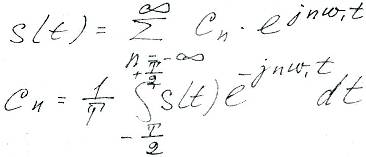 s(t) = ∑_{n=-∞}^{∞} C_n · e^{jnω₁t}
C_n = 1/T ∫_{-T/2}^{+T/2} s(t) e^{-jnω₁t} dt